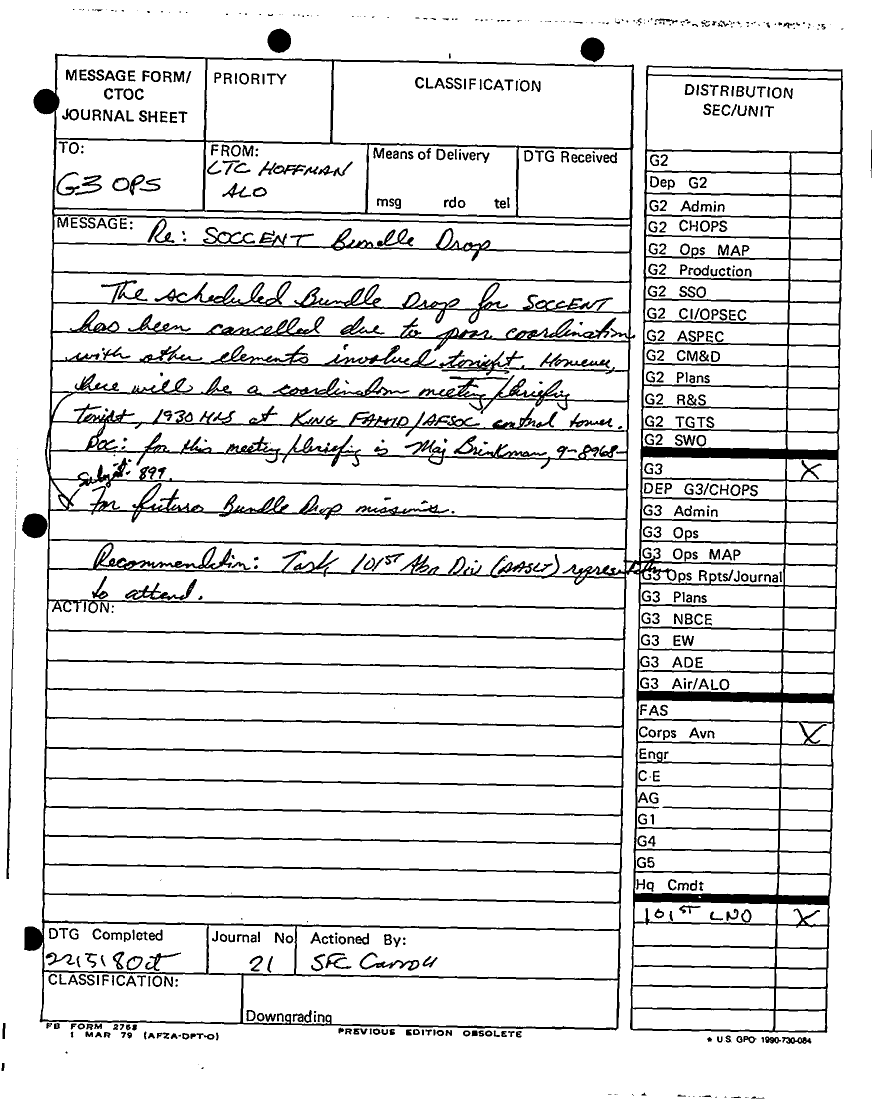 MESSAGE FORM/
CTOC
JOURNAL SHEET
PRIORITY
CLASSIFICATION
TO:
G3 OPS
FROM:
LTC HOFFMAN
ALO
Means of Delivery
msg rdo tel
DTG Received
MESSAGE:
Re: SOCCENT Bundle Drop
The scheduled Bundle Drop for SOCCENT
has been cancelled due to poor coordination
with other elements involved tonight. However,
there will be a coordination meeting/briefing
tonight, 1930 HRS at KING FAHD/AFSOC control tower.
POC: for this meeting/briefing is Maj Brinkman, 9-8968-
899.
Subject:
For future Bundle Drop missions.
Recommendation: Task 101ST Abn Div (AASLT) representative
to attend.
ACTION:
DTG Completed
221518Oct
Journal No
21
Actioned By:
SFC Carroll
CLASSIFICATION:
Downgrading
FB FORM 2768
1 MAR 79 (AFZA-DPT-O)
PREVIOUS EDITION OBSOLETE
DISTRIBUTION
SEC/UNIT
G2
Dep G2
G2 Admin
G2 CHOPS
G2 Ops MAP
G2 Production
G2 SSO
G2 CI/OPSEC
G2 ASPEC
G2 CM&D
G2 Plans
G2 R&S
G2 TGTS
G2 SWO
G3 X
DEP G3/CHOPS
G3 Admin
G3 Ops
G3 Ops MAP
G3 Ops Rpts/Journal
G3 Plans
G3 NBCE
G3 EW
G3 ADE
G3 Air/ALO
FAS
Corps Avn X
Engr
C-E
AG
G1
G4
G5
Hq Cmdt
101ST LNO X
* U.S. GPO: 1990-730-084